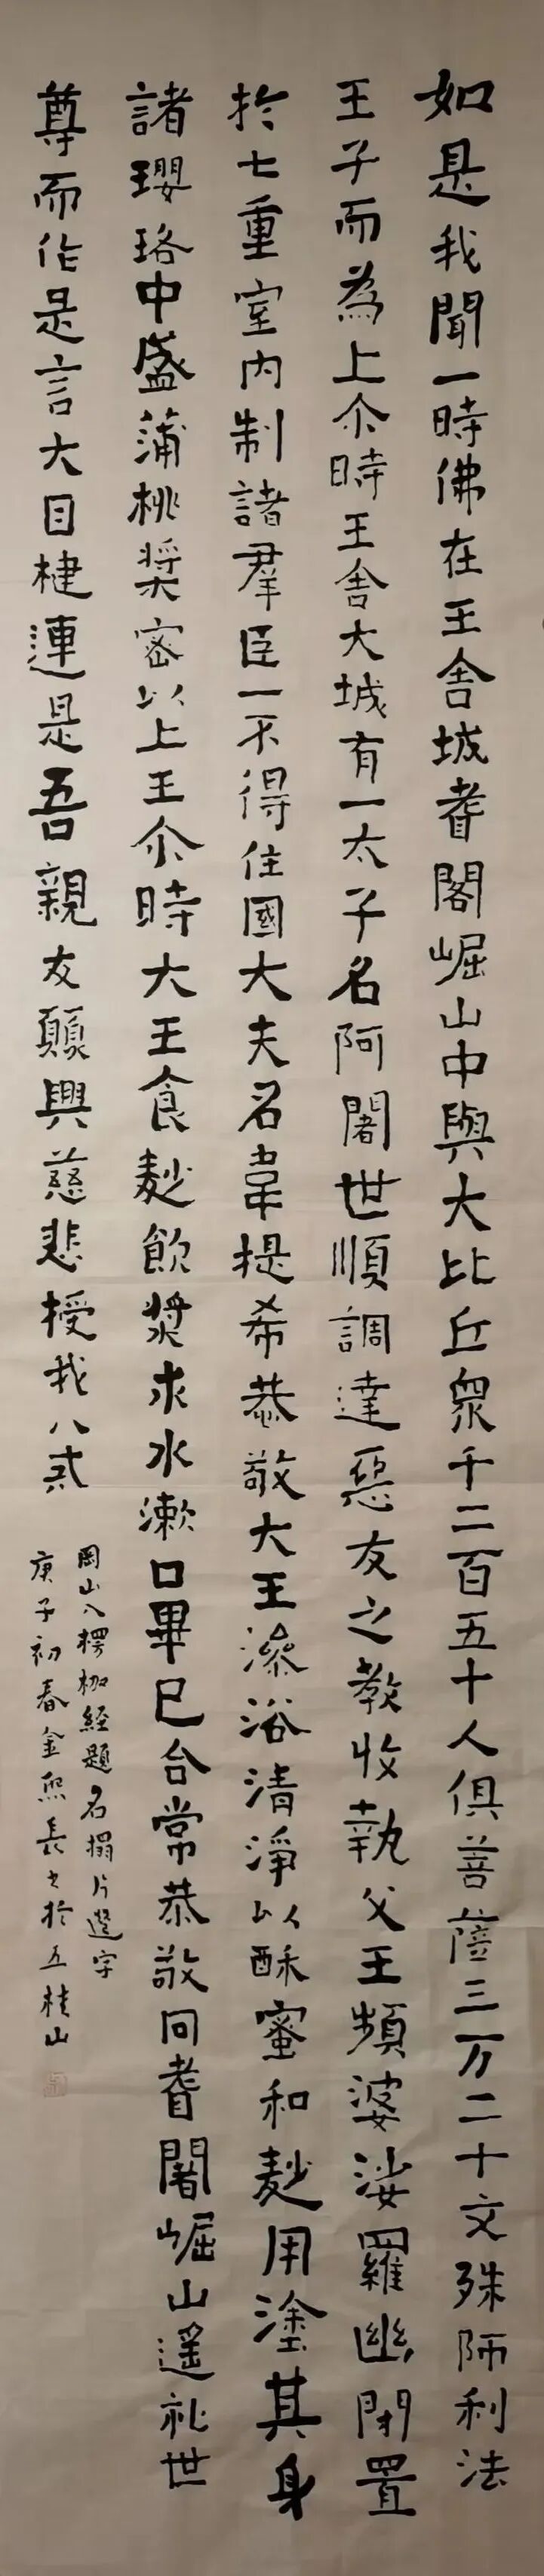 如是我聞一時佛在王舍城耆闍崛山中與大比丘衆千二百五十人俱菩薩三万二千文殊師利法
王子而為上尒時王舍大城有一太子名阿闍世順調達惡友之教收執父王頻婆娑羅幽閉置
於七重室内制諸羣臣一不得住國大夫名韋提希恭敬大王澡浴清淨以酥蜜和麨用塗其身
諸瓔珞中盛蒲桃漿密以上王尒時大王食麨飲漿求水漱口畢已合常恭敬向耆闍崛山遥礼世
尊而作是言大目揵連是吾親友願興慈悲授我八貳
岡山入楞枷經題名搨片選字
庚子初春金熙長書於五桂山